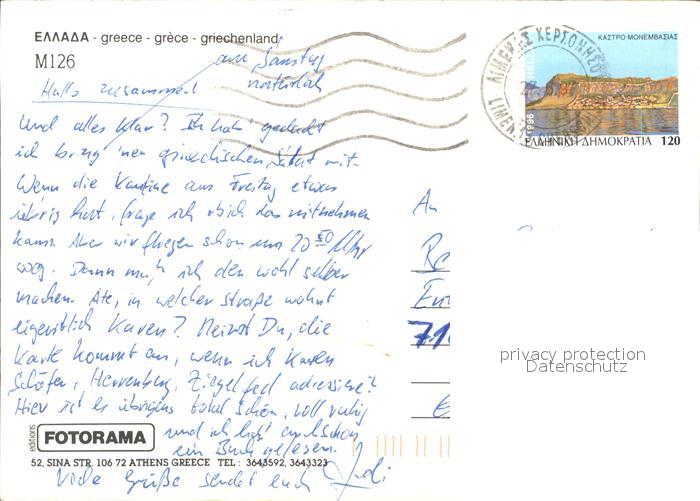 ΕΛΛΑΔΑ - greece - grèce - griechenland
M126
am Samstag
natürlich
Hallo zusammen!
Und alles klar? Ich hab' gedacht
ich bring 'nen griechischen Salat mit.
Wenn die Kantine am Freitag etwas
übrig hat, frage ich ob ich das mitnehmen
kann. Aber wir fliegen schon um 20 50 Uhr
weg. Dann muß ich den wohl selber
machen. Ate, in welcher Straße wohnt
eigentlich Karen? Meinst Du, die
Karte kommt an, wenn ich Karen
Schäfer, Herrenberg, Ziegelfeld adressiere?
Hier ist es übrigens total schön, voll ruhig
und ich hab auch schon
ein Buch gelesen.
Viele Grüße sendet euch
editions FOTORAMA
52, SINA STR. 106 72 ATHENS GREECE TEL: 3643592, 3643323
ΛΙΜΕΝΑΣ ΧΕΡΣΟΝΗΣΟΥ
LIMEN
ΚΑΣΤΡΟ ΜΟΝΕΜΒΑΣΙΑΣ
1996
ΕΛΛΗΝΙΚΗ ΔΗΜΟΚΡΑΤΙΑ 120
An
71
privacy protection
Datenschutz